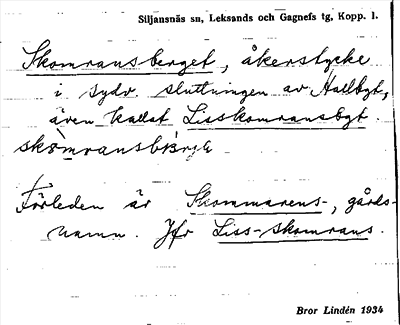 Siljansnäs sn, Leksands och Gagnefs tg, Kopp. l.
Skomransberget, åkerstycke
i sydv sluttningen av Hallbgt,
även kallat Lisskomransbgt.
Förleden är Skommarens-, gårds-
namn. Jfr Liss-skomrans.
Bror Lindén 1934